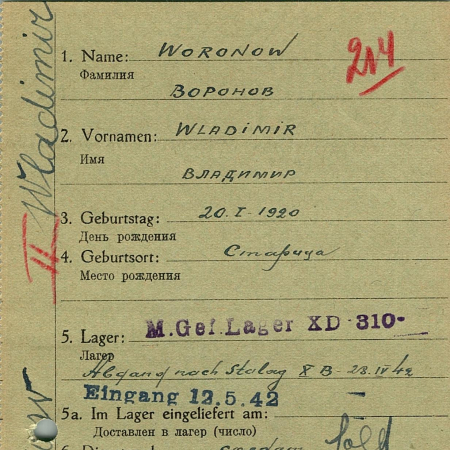 1. Name: WORONOW
Фамилия
ВОРОНОВ
214
2. Vornamen: WLADIMIR
Имя
ВЛАДИМИР
3. Geburtstag: 20. I - 1920
День рождения
4. Geburtsort: Старица
Место рождения
5. Lager: M.Gef.Lager XD 310-
Лагерь
Abgang nach Stalag X B - 23. IV 42
Eingang 12.5.42
5a. Im Lager eingeliefert am:
Доставлен в лагерь (число)
Sold
II Wladimir
ow